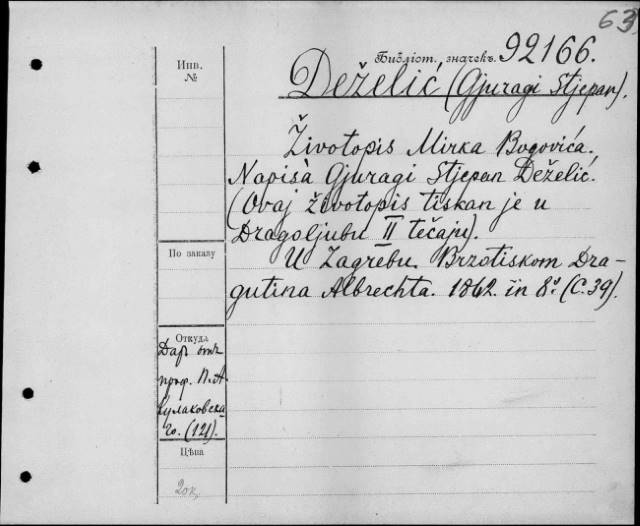 63
Библіот. значекъ. 92166.
Инв.
№
Deželić (Gjuragi Stjepan).
Životopis Mirka Bogovića.
Napisà Gjuragi Stjepan Deželić.
(Ovaj životopis tiskan je u
Dragoljubu II tečaju).
U Zagrebu. Brzotiskom Dra-
gutina Albrechta. 1862. in 8º. (C. 39).
По заказу
Откуда
Даръ отъ
проф. П. А.
Кулаковска-
го. (121).
Цѣна
20к.